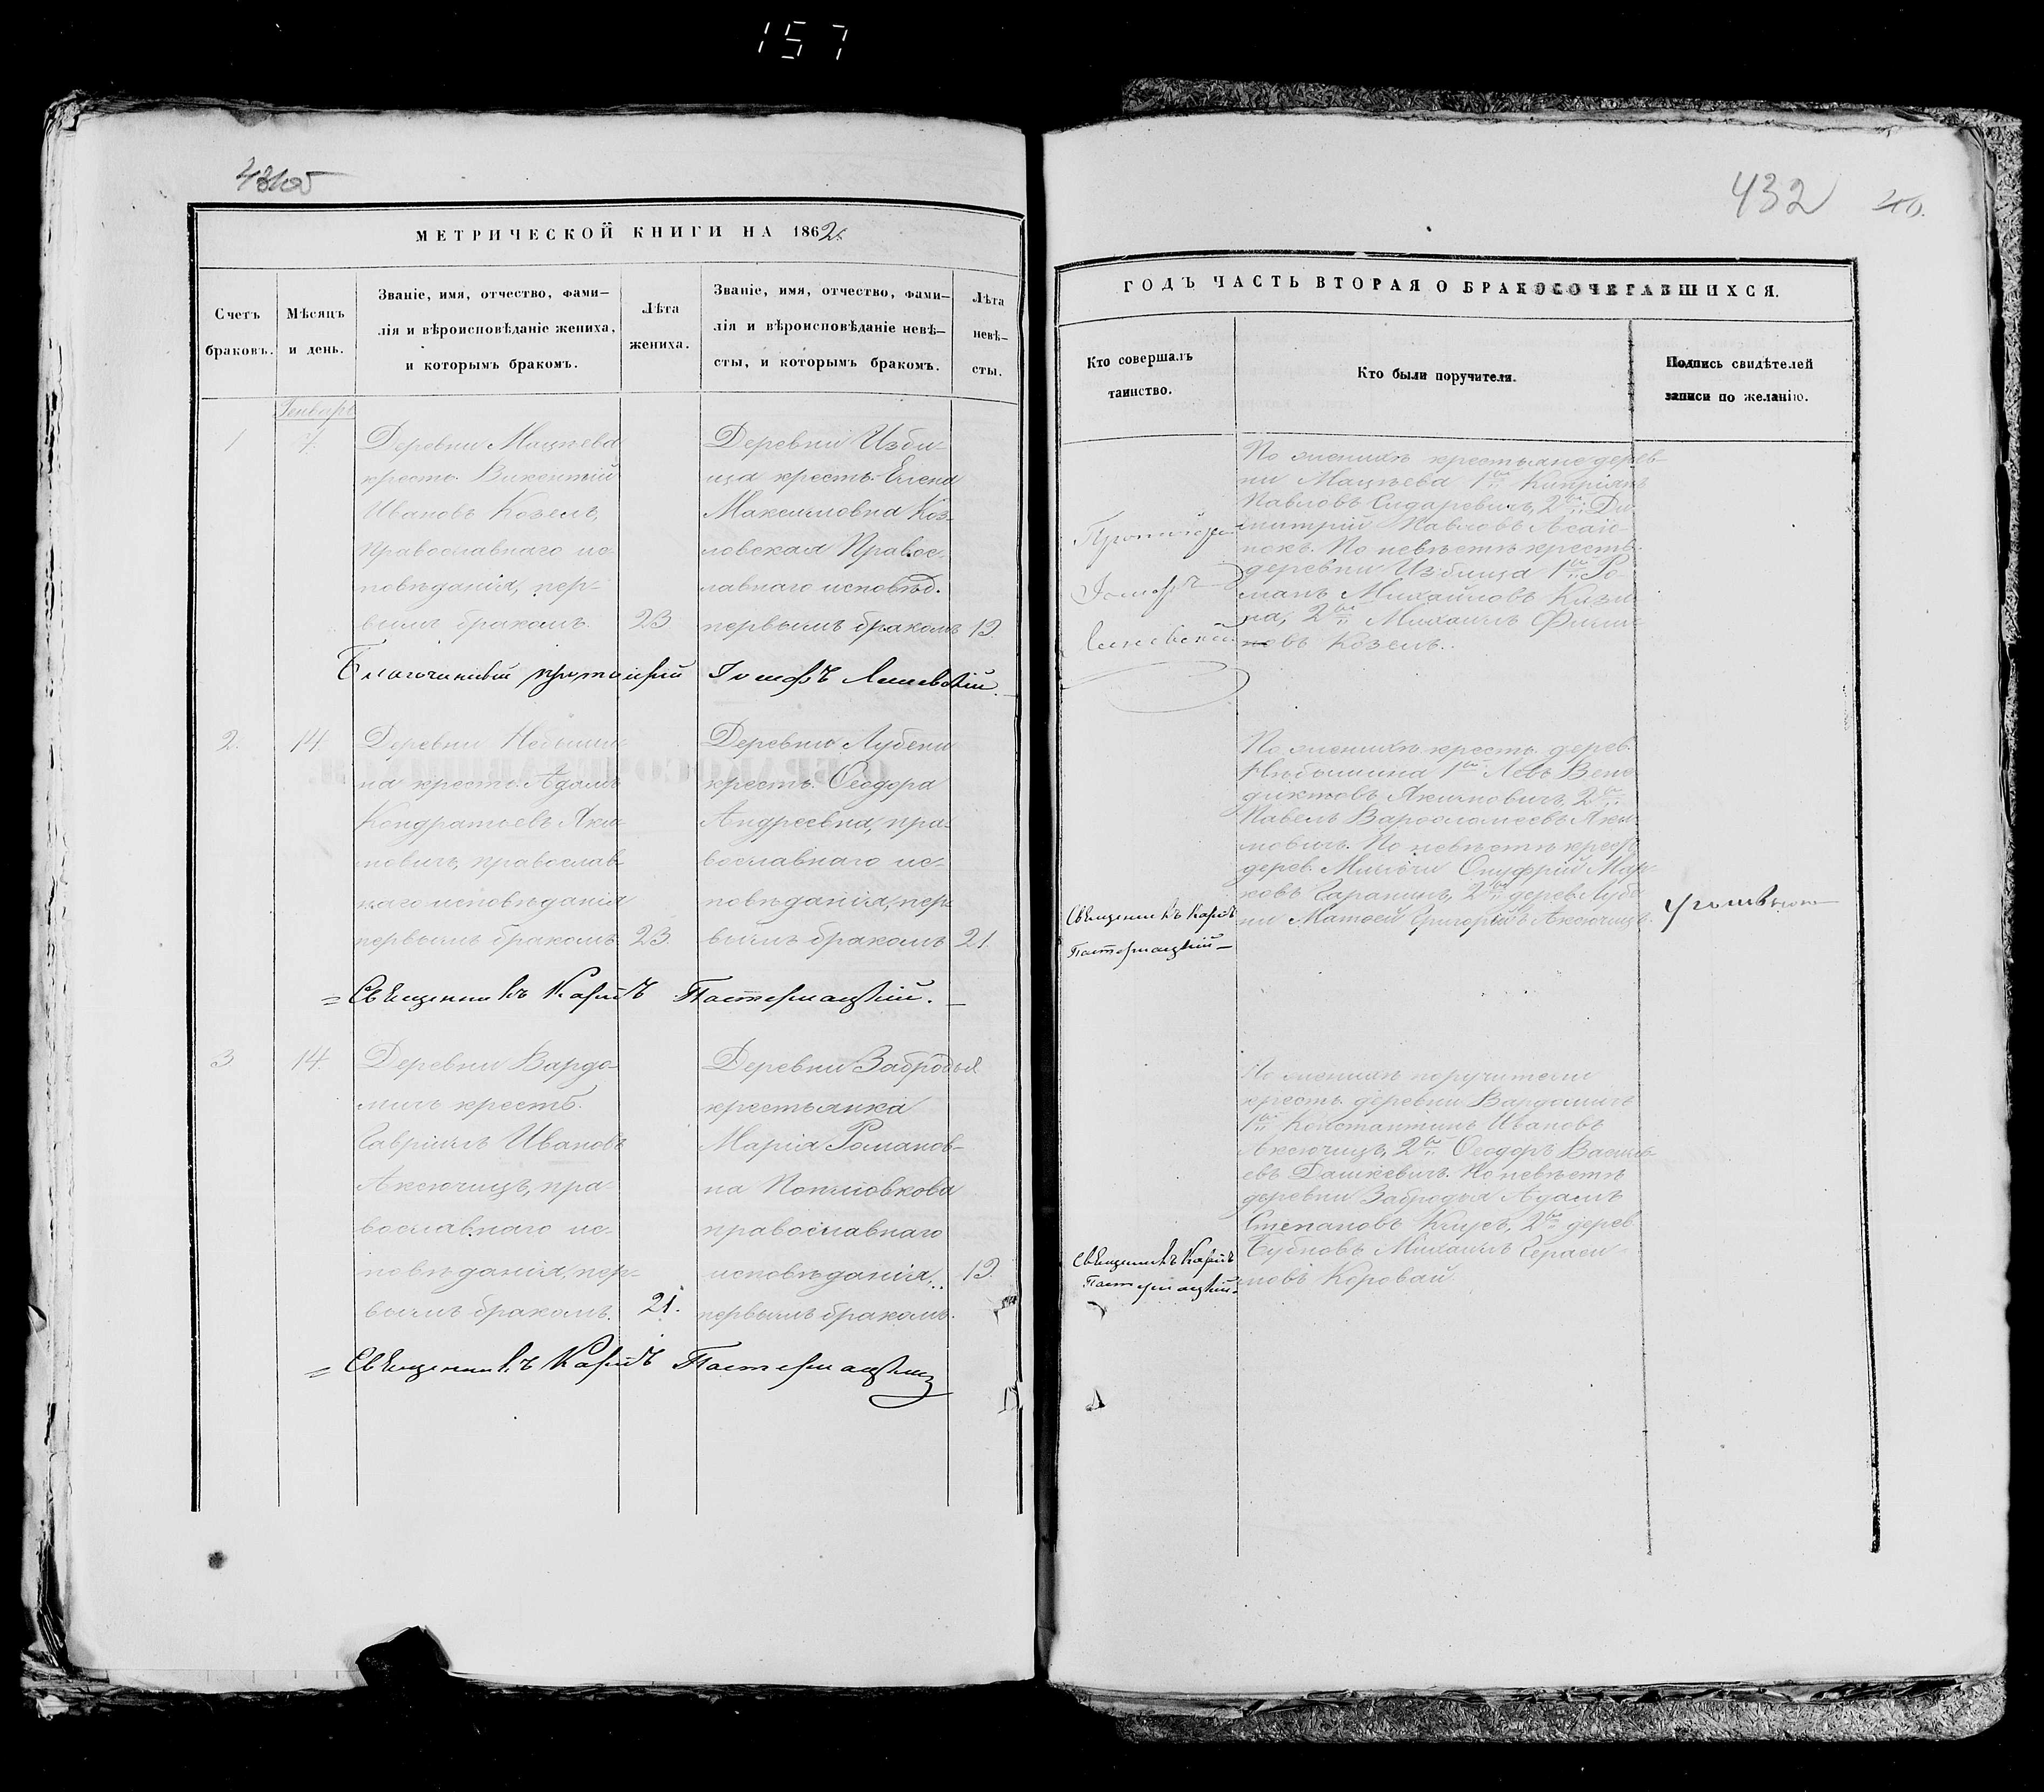 157
431об
МЕТРИЧЕСКОЙ КНИГИ НА 1862
Счетъ браковъ.
Мѣсяцъ и день.
Званіе, имя, отчество, фами-
лія и вѣроисповѣданіе жениха,
и которымъ бракомъ.
Лѣта жениха.
Званіе, имя, отчество, фами-
лія и вѣроисповѣданіе невѣ-
сты, и которымъ бракомъ.
Лѣта невѣ-
сты.
Генварь
1
7.
Деревни Мацѣева
крест. Викентій
Ивановъ Козелъ,
православнаго ис-
повѣданія, пер-
вымъ бракомъ.
23
Деревни Изби-
ща крестъ. Елена
Максимовна Коз-
ловская Правос-
лавнаго исповѣд.
первымъ бракомъ
19.
Благочинный протоіерей Іосифъ
2.
14.
Деревни Небыши-
на крест. Адамъ
Кондратьевъ Яки-
мовичъ, православ-
наго исповѣданія
первымъ бракомъ
23.
Деревни Лубени
крестъ. Ѳеодора
Андреевна, пра-
вославнаго ис-
повѣданія, пер-
вымъ бракомъ
21.
= Священникъ Карпъ Пастернацкій. —
3
14.
Деревни Вардо-
мичъ крестъ.
Гавріилъ Ивановъ
Аксючицъ, пра-
вославнаго ис-
повѣданія, пер-
вымъ бракомъ.
21.
Деревни Забродья
крестьянка
Марія Романов-
на
православнаго
исповѣданія,
первымъ бракомъ.
19.
= Священникъ Карпъ Пастернацкій
432
40.
ГОДЪ ЧАСТЬ ВТОРАЯ О БРАКОСОЧЕТАВШИХСЯ.
Кто совершалъ
таинство.
Кто были поручители.
Подпись свидѣтелей
записи по желанію.
Протоіерей
Іосифъ
По женихѣ крестьяне дерев-
ни Мацѣева 1й Кипріянъ
Павловъ Сидаревичъ, 2й Ди-
митрій Павловъ
По невѣстѣ крестъ.
деревни Избища 1й Ро-
манъ Михайловъ
2й Михаилъ Фили-
повъ Козелъ.
Священникъ Карпъ
Пастернацкій —
По женихѣ крестъ. дерев.
Небышина 1й Левъ Вене-
диктовъ Якимовичъ, 2й
Павелъ Варѳоломеевъ Яки-
мовичъ. По невѣстѣ крест.
дерев. Онуфрій Мар-
ковъ 2й дерев. Лубе-
ни Матѳей Григорьевъ Аксючицъ.
Священникъ Карпъ
Пастернацкій.
По женихѣ поручители
крестъ. деревни Вардомичъ
1й Константинъ Ивановъ
Аксючицъ, 2й Ѳеодоръ Василь-
евъ Дашкевичъ. По невѣстѣ
деревни Забродья Адамъ
Степановъ 2й дерев.
Бубновъ Михаилъ Гераси-
мовъ Коровай.